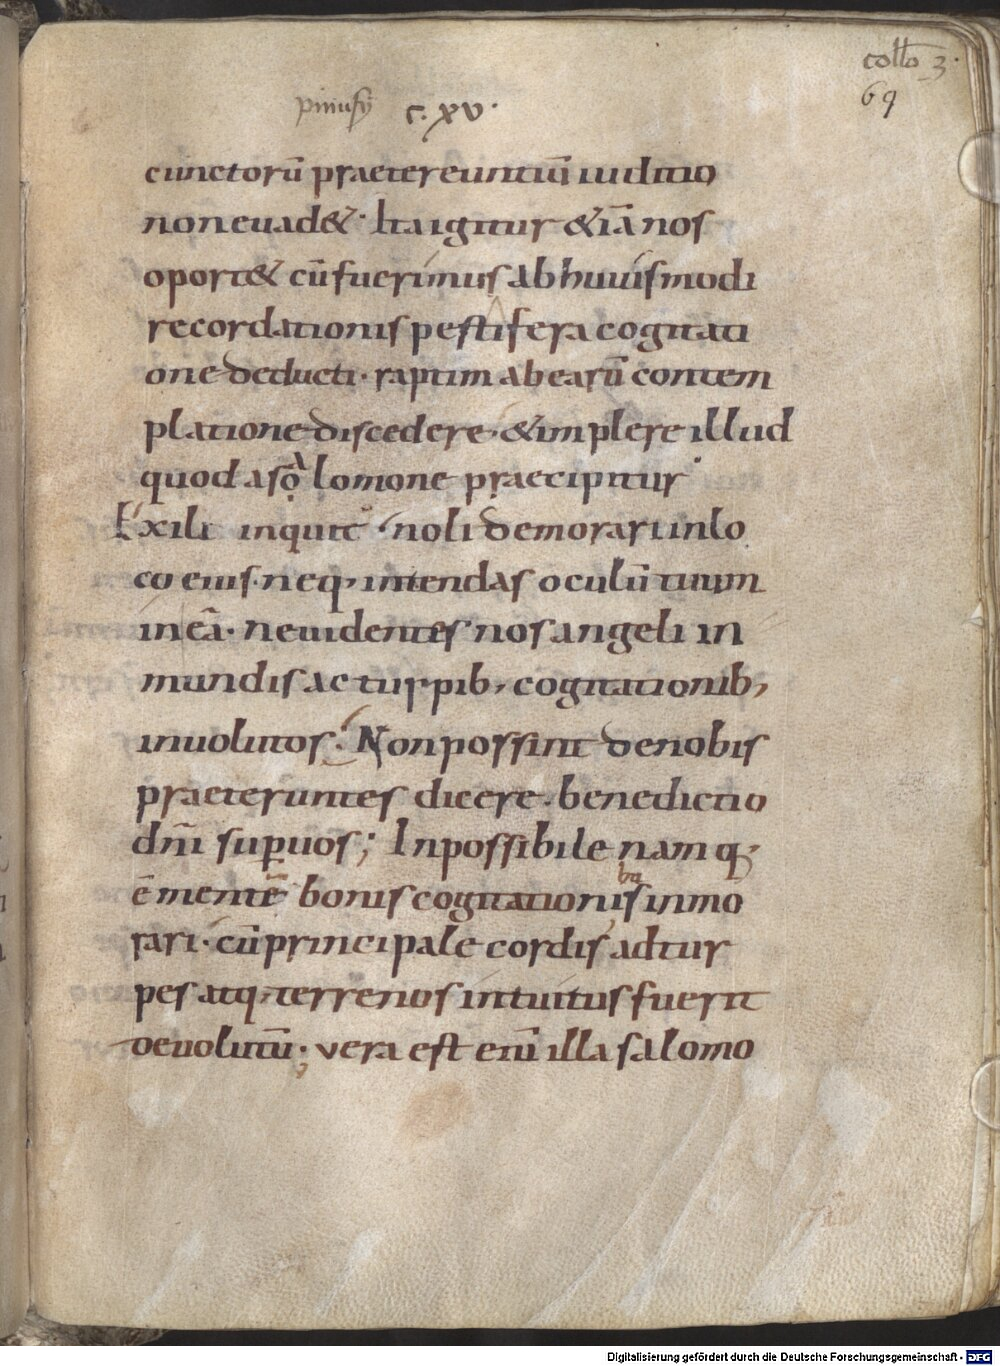 collo 3.
69
pinufij c. xv.
cunctorū praetereuntiū iuditio
non euad&. Ita igitur &iā nos
oport& cū fuerimus ab huiuismodi
recordationis pestifera cogitati
one deducti. raptim ab earū contem
platione discedere. & implere illud
quod a solomone praecipitur
Exili inquit noli demorari in lo
co eius. neq; intendas oculū tuum
in eā. ne uidentes nos angeli in
mundis ac turpib; cogitationib;
inuolutos. Non possint de nobis
praetereuntes dicere. benedictio
dn̄i sup uos; Inpossibile namq;
ē mentē bonis cogitationis inmo
rari. cū principale cordis ad tur
pes atq; terrenos intuitus fuerit
deuolutū; vera est enī illa salomo
Digitalisierung gefördert durch die Deutsche Forschungsgemeinschaft - DFG